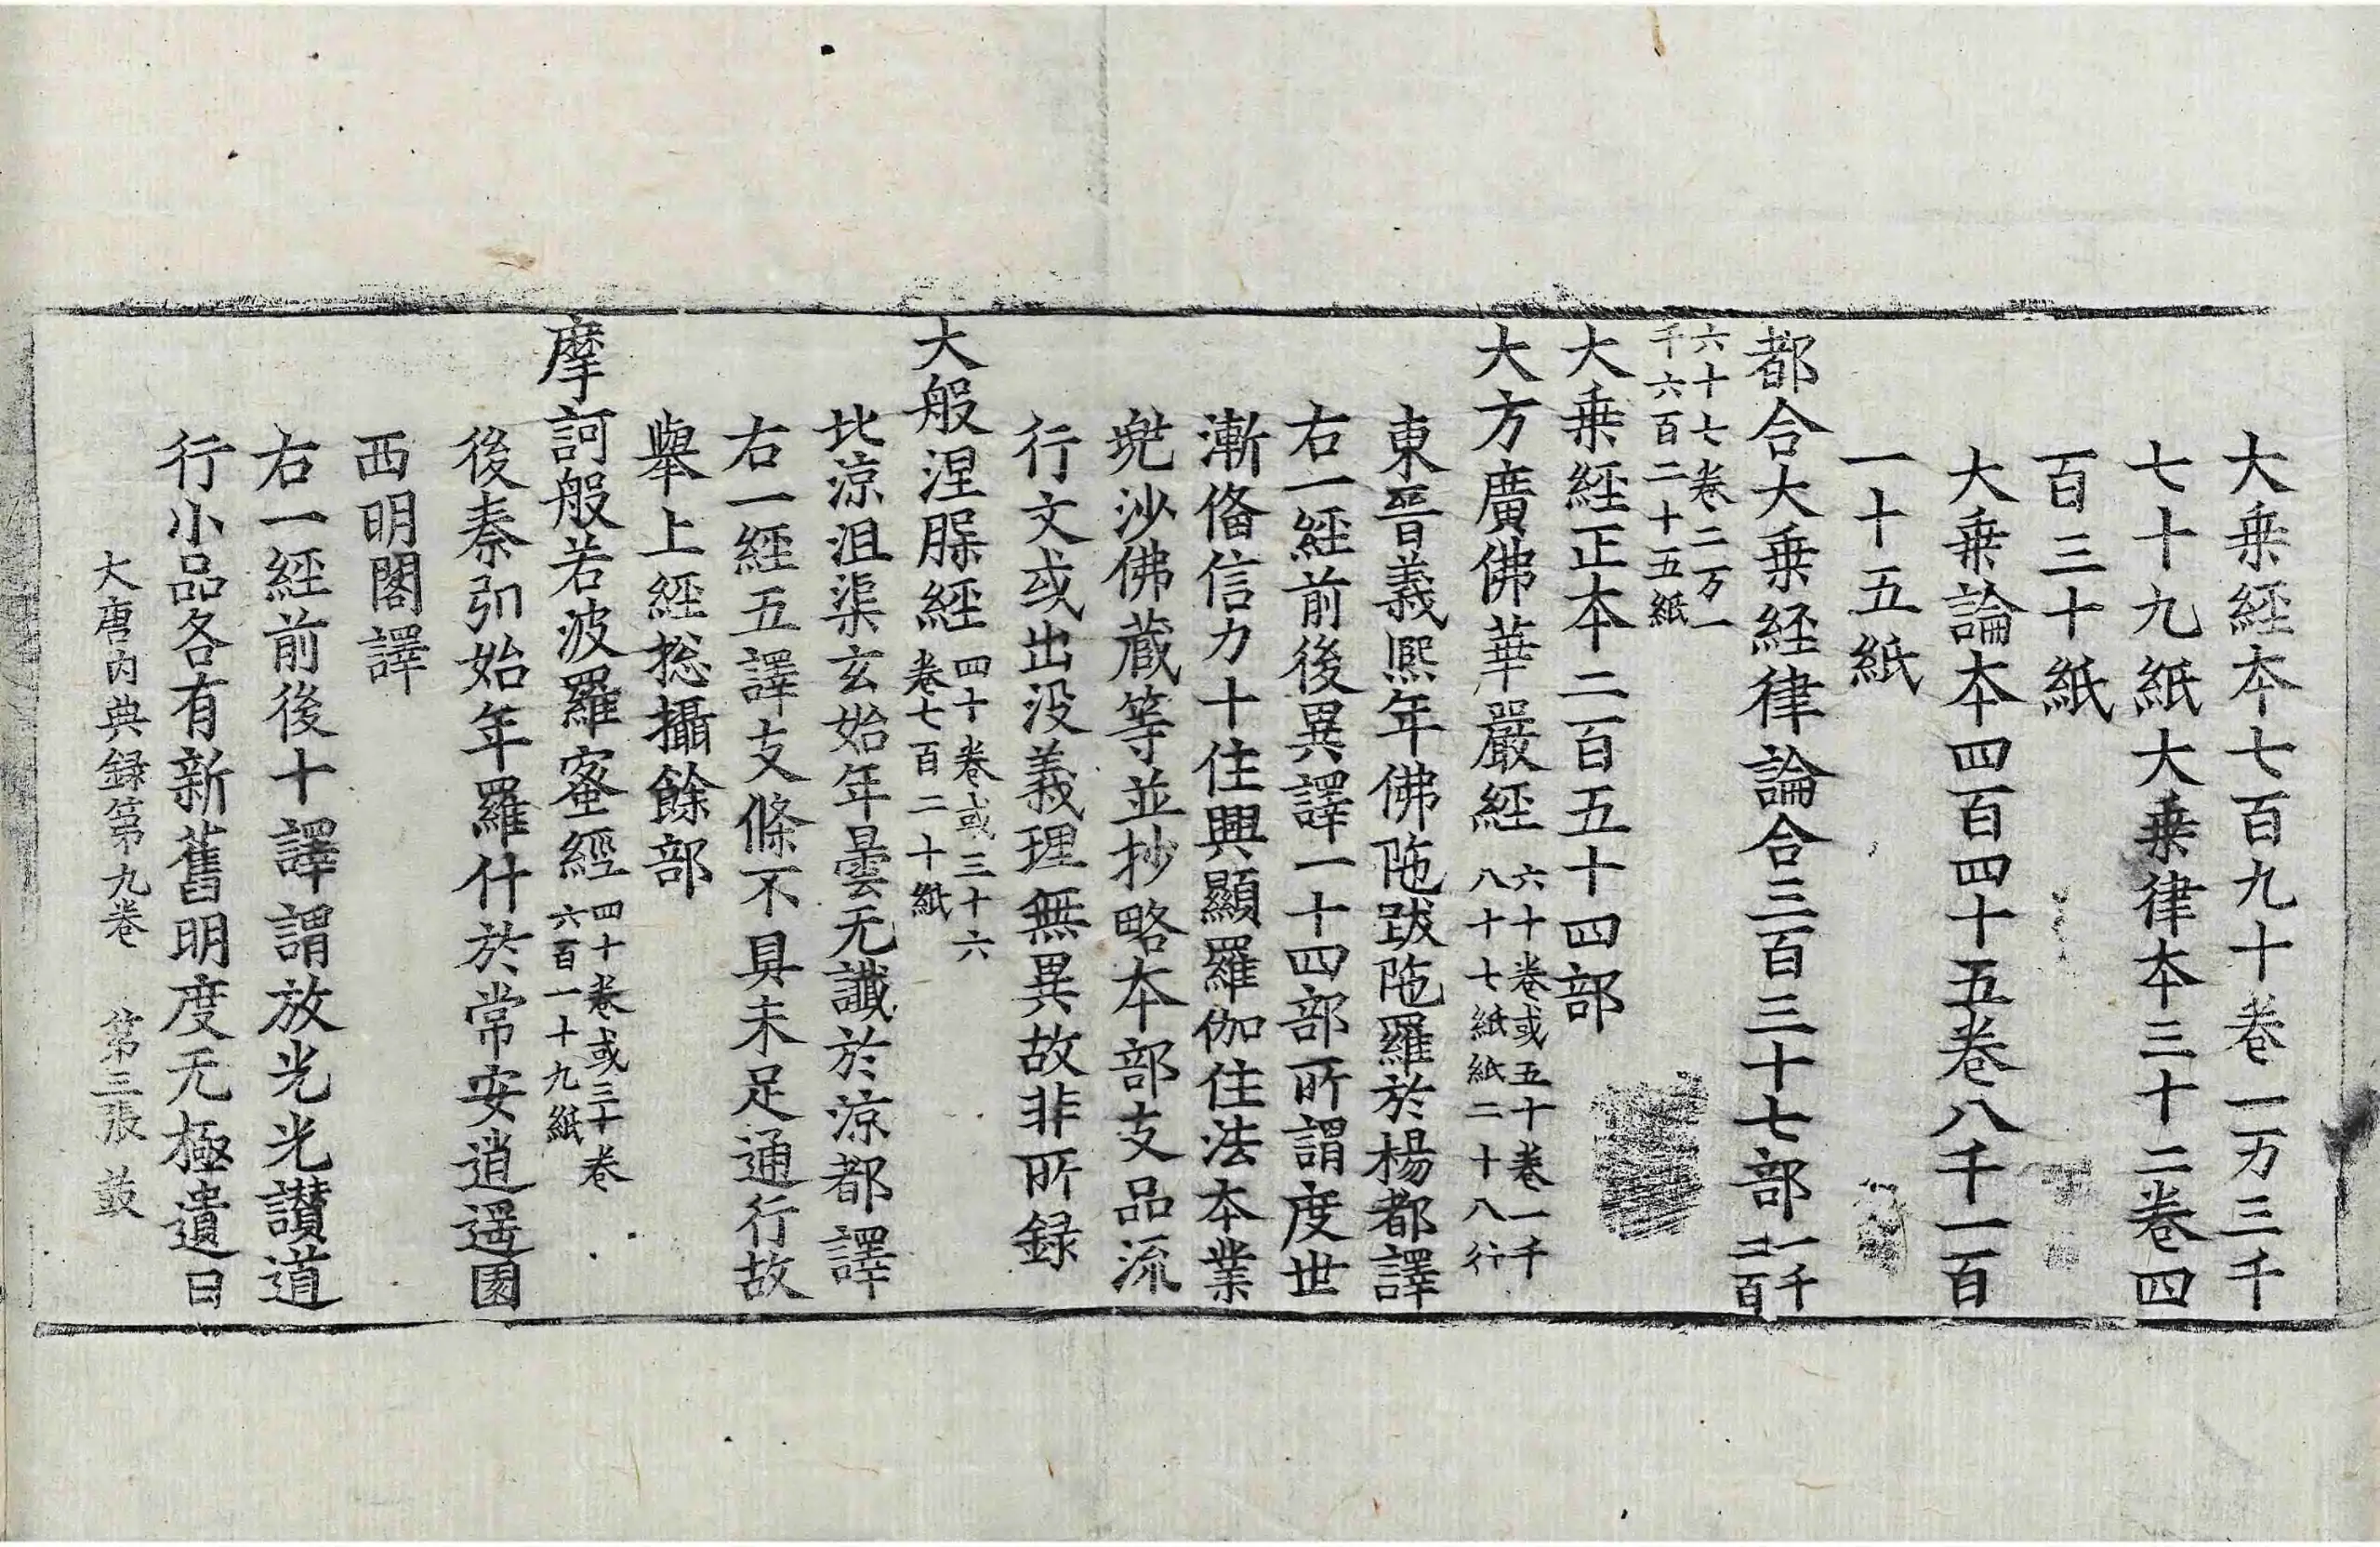 大乗経本七百九十卷一万三千
七十九紙大乗律本三十二卷四
百三十紙
大乗論本四百四十五卷八千一百
一十五紙
都合大乗経律論合三百三十七部一千二百
六十七卷二万一
千六百二十五紙
大乗経正本二百五十四部
大方廣佛華嚴経六十卷或五十卷一千
八十七紙紙二十八行
東晉義熈年佛陁跋陁羅於楊都譯
右一經前後異譯一十四部所謂度世
漸俻信力十住興顯羅伽住法本業
兠沙佛蔵等並抄略本部支品流
行文或出没義理無異故非所録
大般涅槃經四十卷或三十六
卷七百二十紙
北涼沮渠玄始年曇无讖於涼都譯
右一經五譯支條不具未足通行故
舉上經揔攝餘部
摩訶般若波羅蜜經四十卷或三十卷
六百一十九紙
後秦弘始年羅什於常安逍遥園
西明閣譯
右一經前後十譯謂放光光讃道
行小品各有新舊明度无極遺日
大唐内典録第九卷　第三張